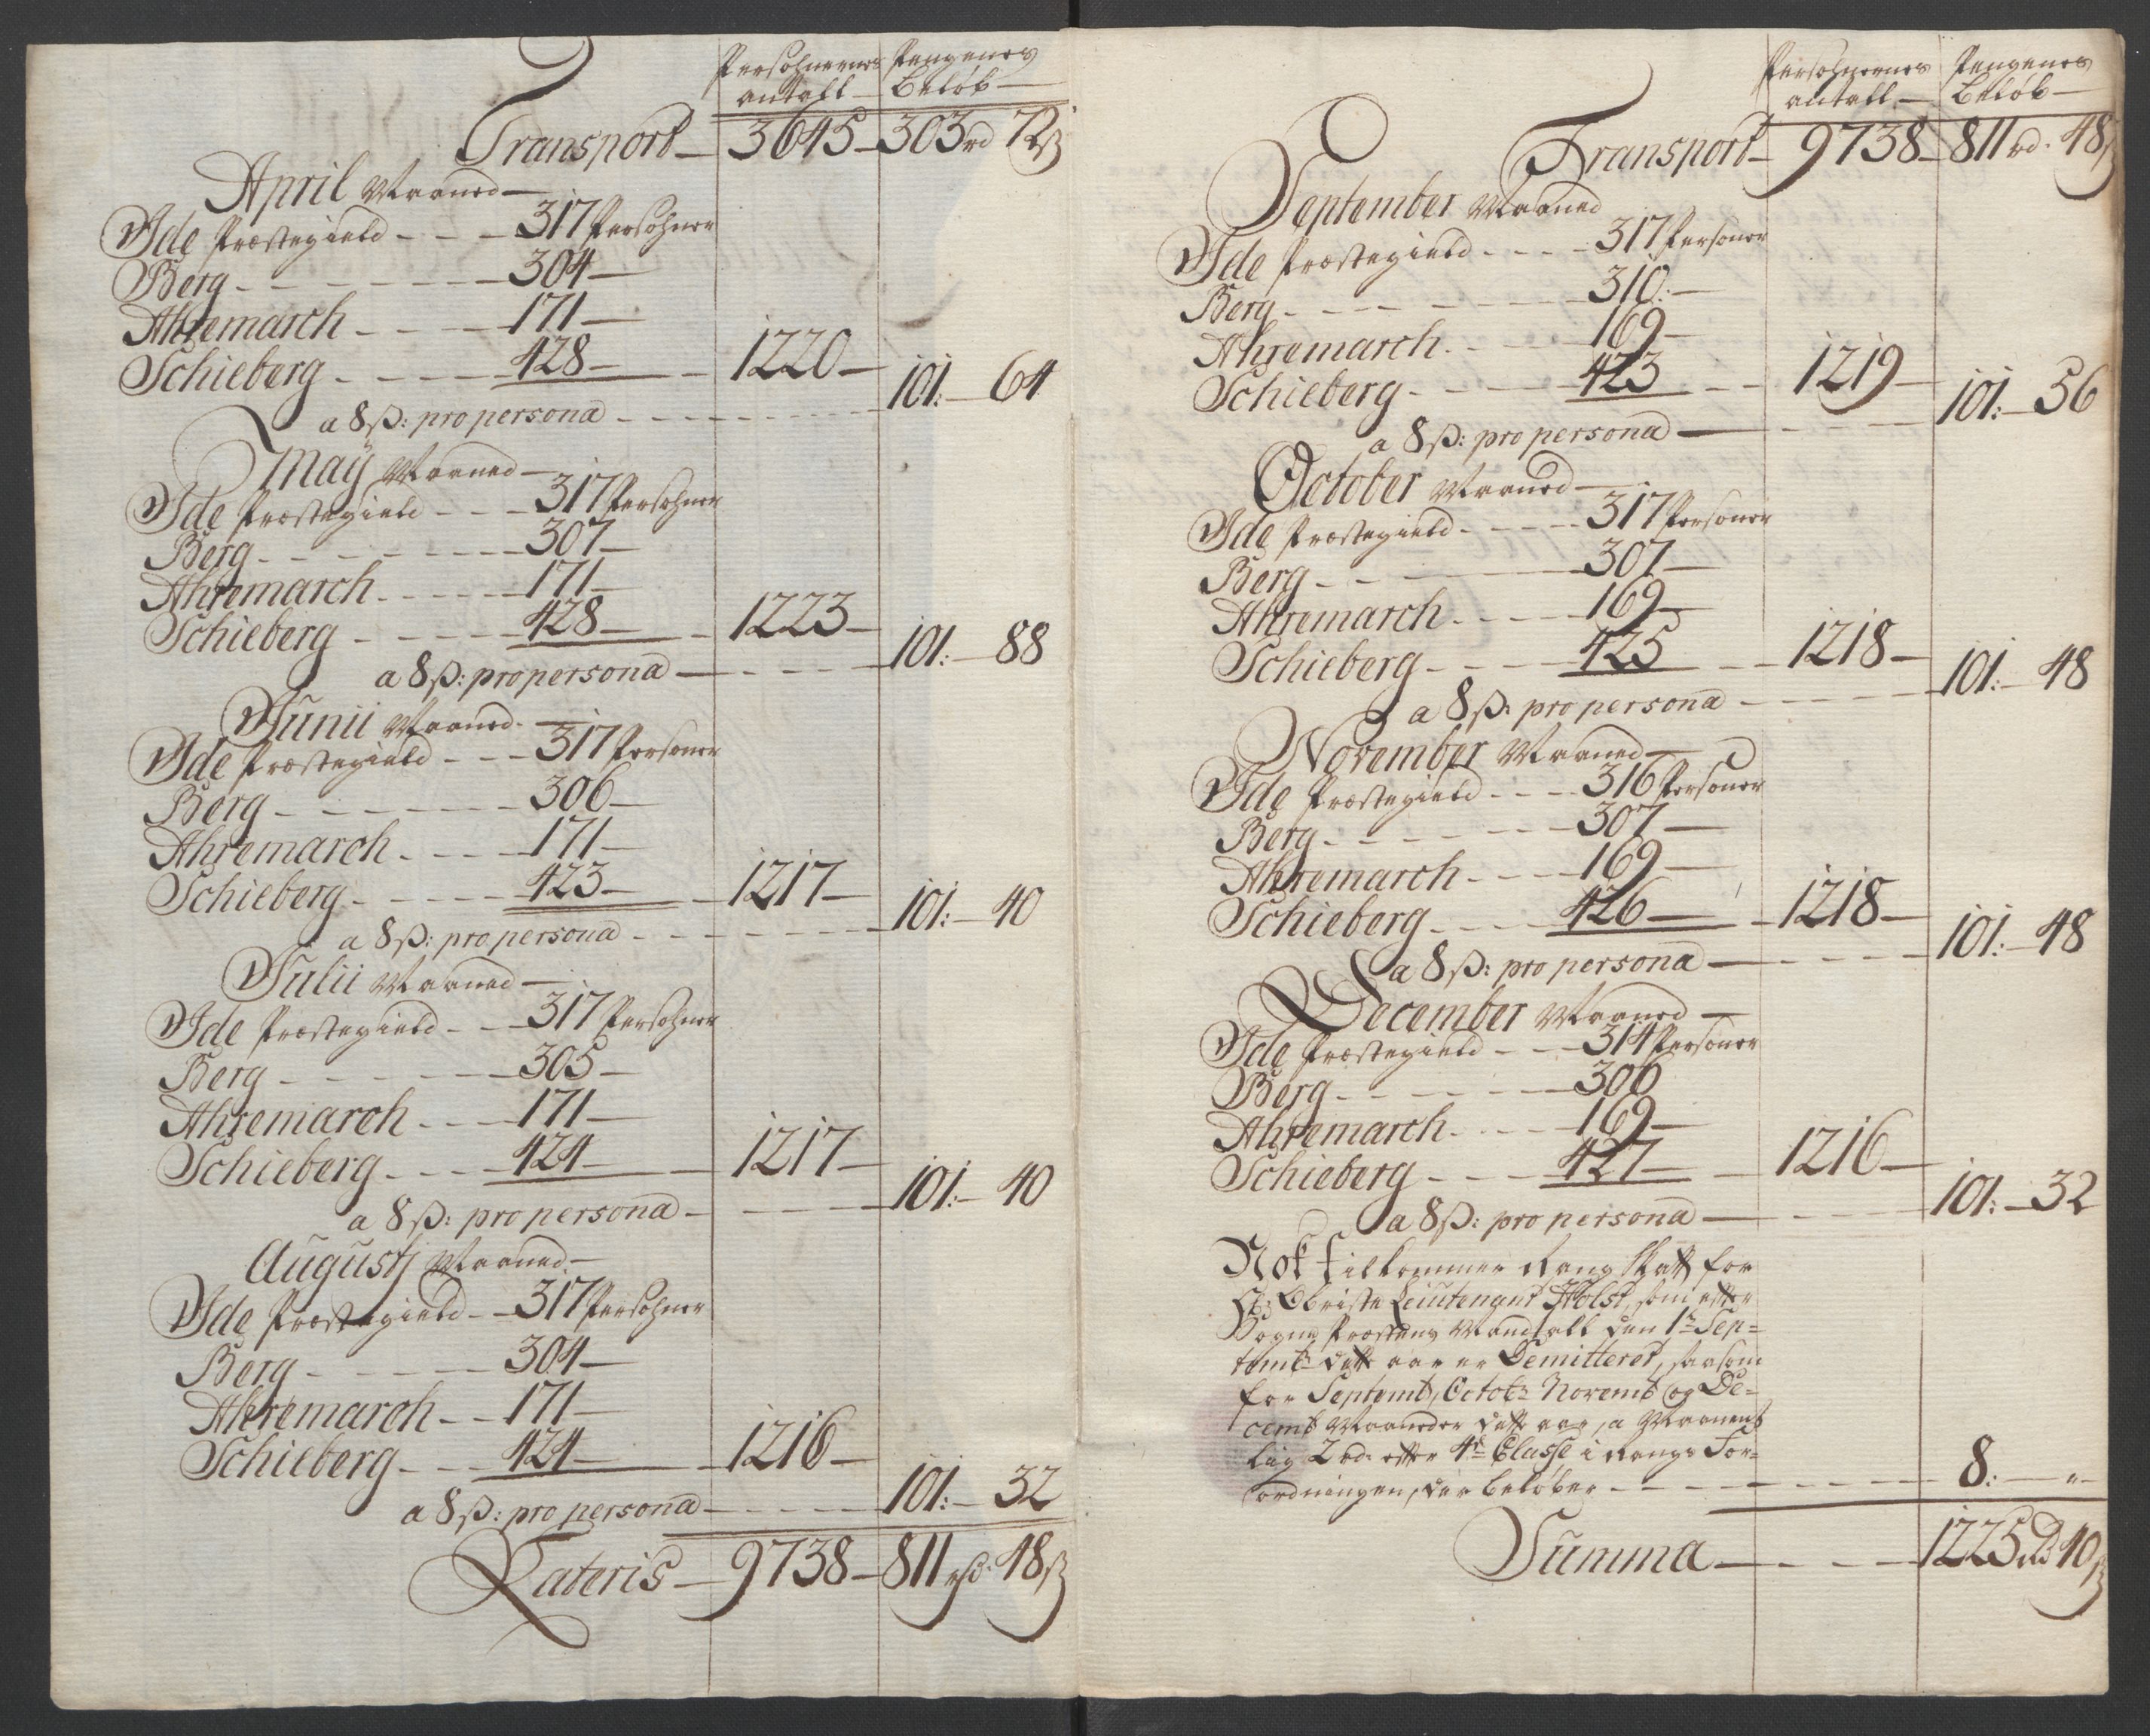 Persohnernes Pengenes
antall Beløb
Transport 3645 303 rd 72 ß
April Maaned
Ide Præstegield 317 Persohner
Berg 304
Ahremarch 171
Schieberg 428 1220
a 8 ß: pro persona 101: 64
May Maaned
Ide Præstegield 317 Persohner
Berg 307
Ahremarch 171
Schieberg 428 1223
a 8 ß: pro persona 101: 88
Junii Maaned
Ide Præstegield 317 Personer
Berg 306
Ahremarch 171
Schieberg 423 1217
a 8 ß: pro persona 101: 40
Julii Maaned
Ide Præstegield 317 Persohner
Berg 305
Ahremarch 171
Schieberg 424 1217
a 8 ß: pro persona 101: 40
Augustj Maaned
Ide Præstegield 317 Persohner
Berg 304
Ahremarch 171
Schieberg 424 1216
a 8 ß: pro persona 101: 32
Lateris 9738 811 rd: 48 ß
Persohnernes Pengenes
antall Beløb
Transport 9738 811 rd. 48 ß
September Maaned
Ide Præstegield 317 Personer
Berg 310:
Ahremarch 169
Schieberg 423 1219
a 8 ß: pro persona 101: 56
October Maaned
Ide Præstegield 317 Personer
Berg 307
Ahremarch 169
Schieberg 425 1218
a 8 ß: pro persona 101: 48
November Maaned
Ide Præstegield 316 Personer
Berg 307
Ahremarch 169
Schieberg 426 1218
a 8 ß: pro persona 101: 48
December Maaned
Ide Præstegield 314 Personer
Berg 306
Ahremarch 169
Schieberg 427 1216
a 8 ß: pro persona 101: 32
Nok tilkommer Rang Skatt for
Hr: Obriste Leiutenant Holst, som efter
Sogne Præstens Mandtall den 1te Sep=
temb: dette aar er Demitteret, saasom
for Septemb, Octob: Novemb og De=
cemb Maaneder dette aar, a Maanent
lig 2 rd. efter 4de Classe i Rangs For=
ordningen, der beløber 8: "
Summa 1225 rd 40 ß